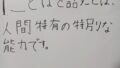 ことばで話すことは、
人間特有の特別な
能力です。